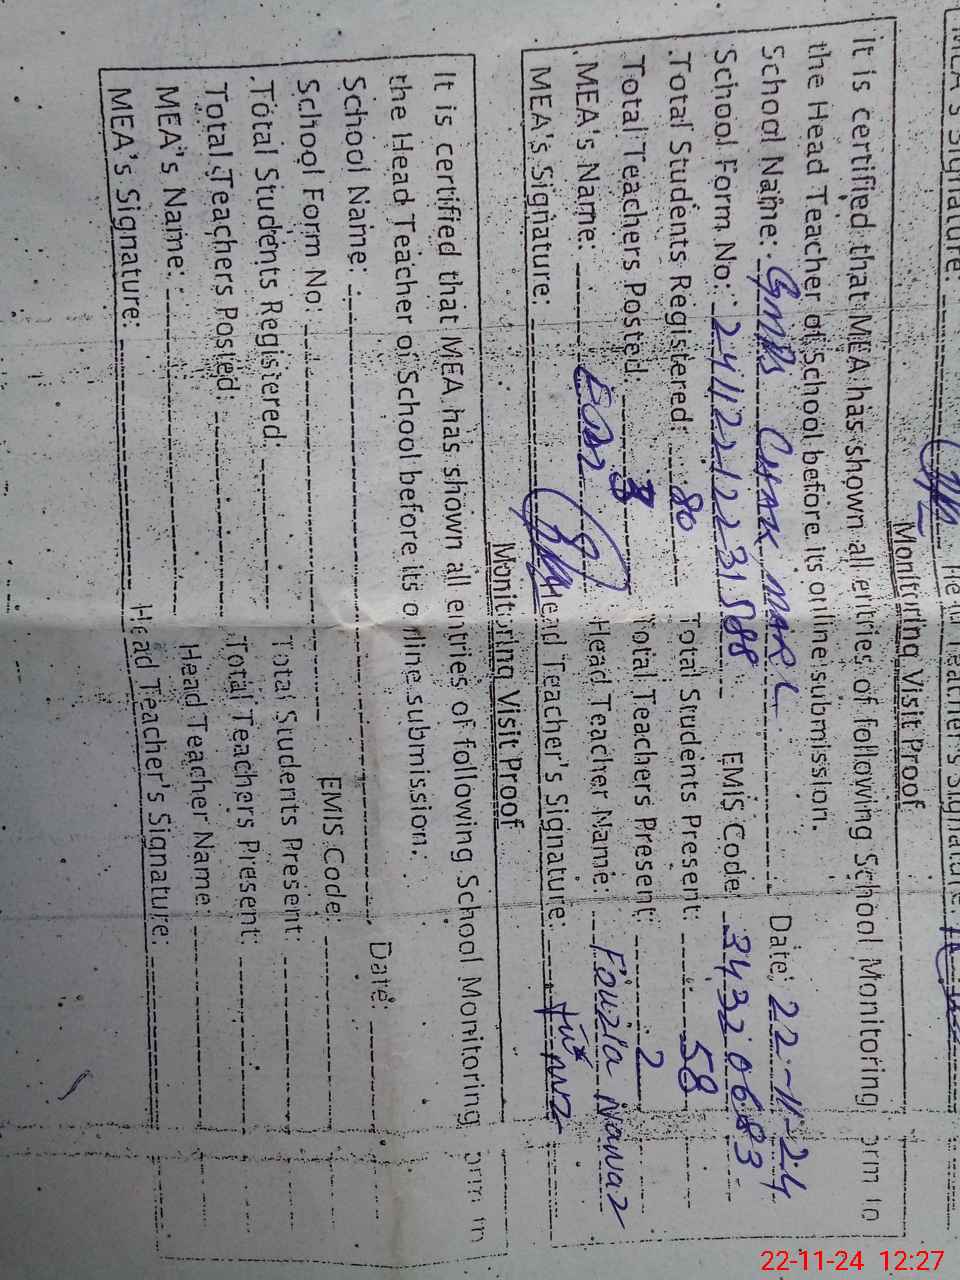 MEA's Signature: Head Teacher's Signature:
Monitoring Visit Proof
It is certified that MEA has shown all entries of following School Monitoring orm to
the Head Teacher of School before its online submission.
School Name: GMPS CHAK Date: 22-11-24
School Form No: 24112212231588 EMIS Code: 34320683
Total Students Registered: 80 Total Students Present: 58
Total Teachers Posted: 3 Total Teachers Present: 2
MEA's Name: Head Teacher Name: Fouzia Nawaz
MEA's Signature: Head Teacher's Signature:
Monitoring Visit Proof
It is certified that MEA has shown all entries of following School Monitoring orm to
the Head Teacher of School before its online submission.
School Name: Date:
School Form No: EMIS Code:
Total Students Registered: Total Students Present:
Total Teachers Posted: Total Teachers Present:
MEA's Name: Head Teacher Name:
MEA's Signature: Head Teacher's Signature:
22-11-24 12:27